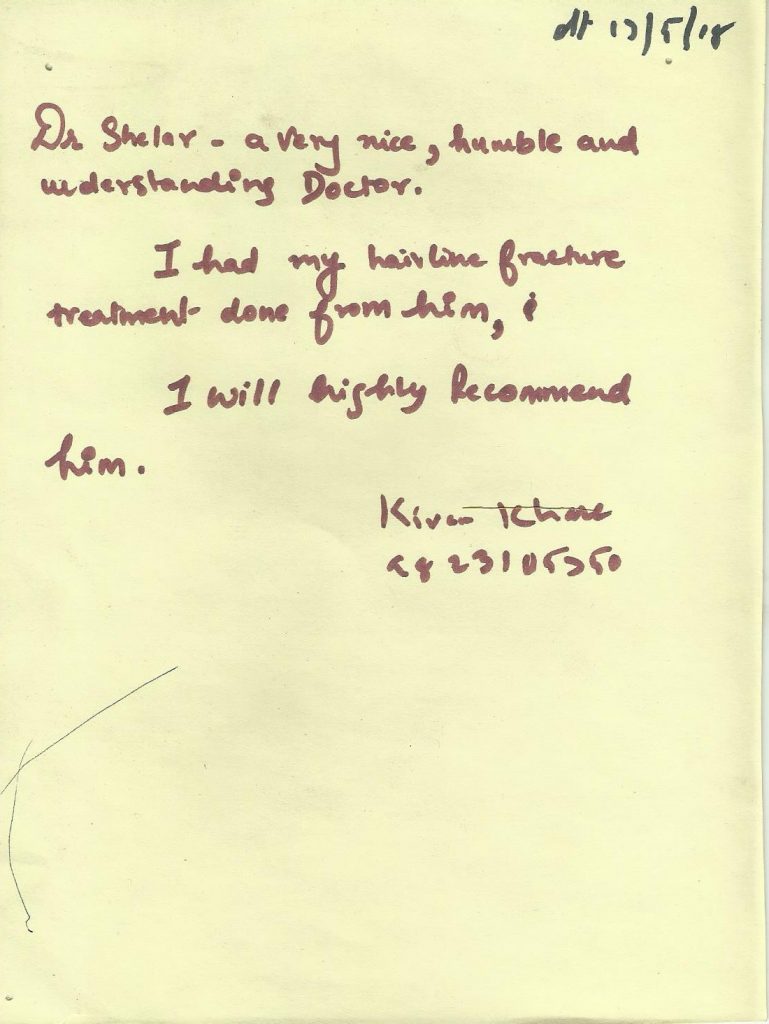 dt 17/5/18
Dr Shelar - a very nice, humble and
understanding Doctor.
I had my hairline fracture
treatment done from him, &
I will highly Recommend
him.
Kiran Khare